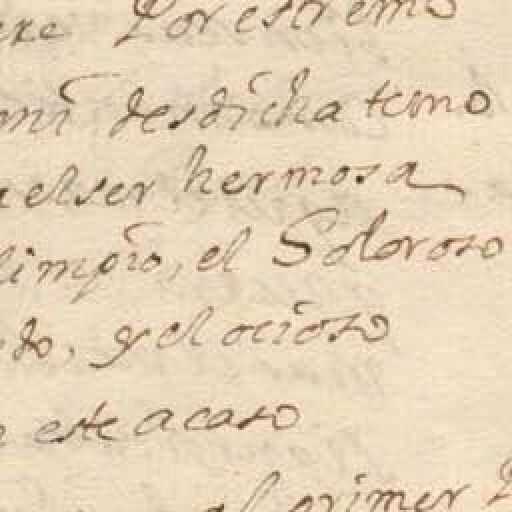 Por estremo
mi desdicha temo
el ser hermosa
limpio, el Doloroso
do, y el ocioso
este acaso
el primer